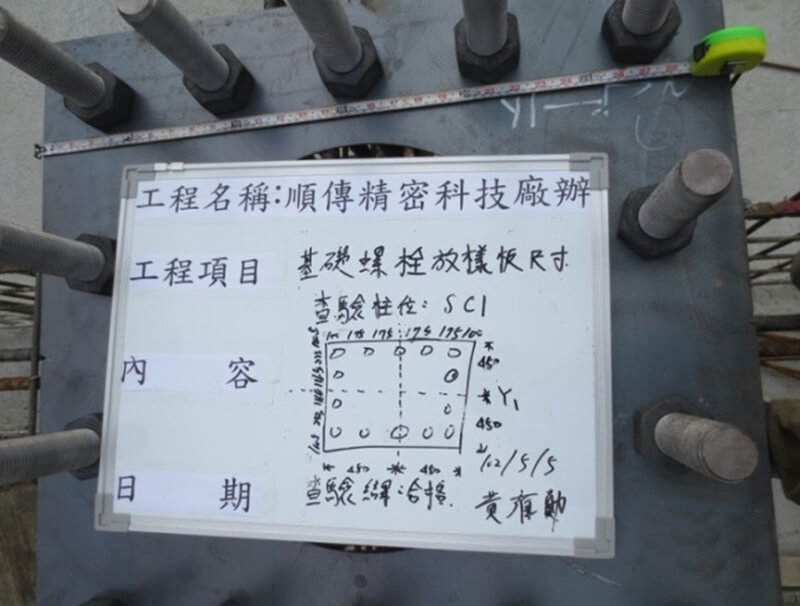 工程名稱:順傳精密科技廠辦
工程項目 基礎螺栓放樣板尺寸
查驗柱位: SC1
100 175 175 175 175 100
內 容
450
Y1
450
450 450
112/5/5
日 期 查驗結果:合格